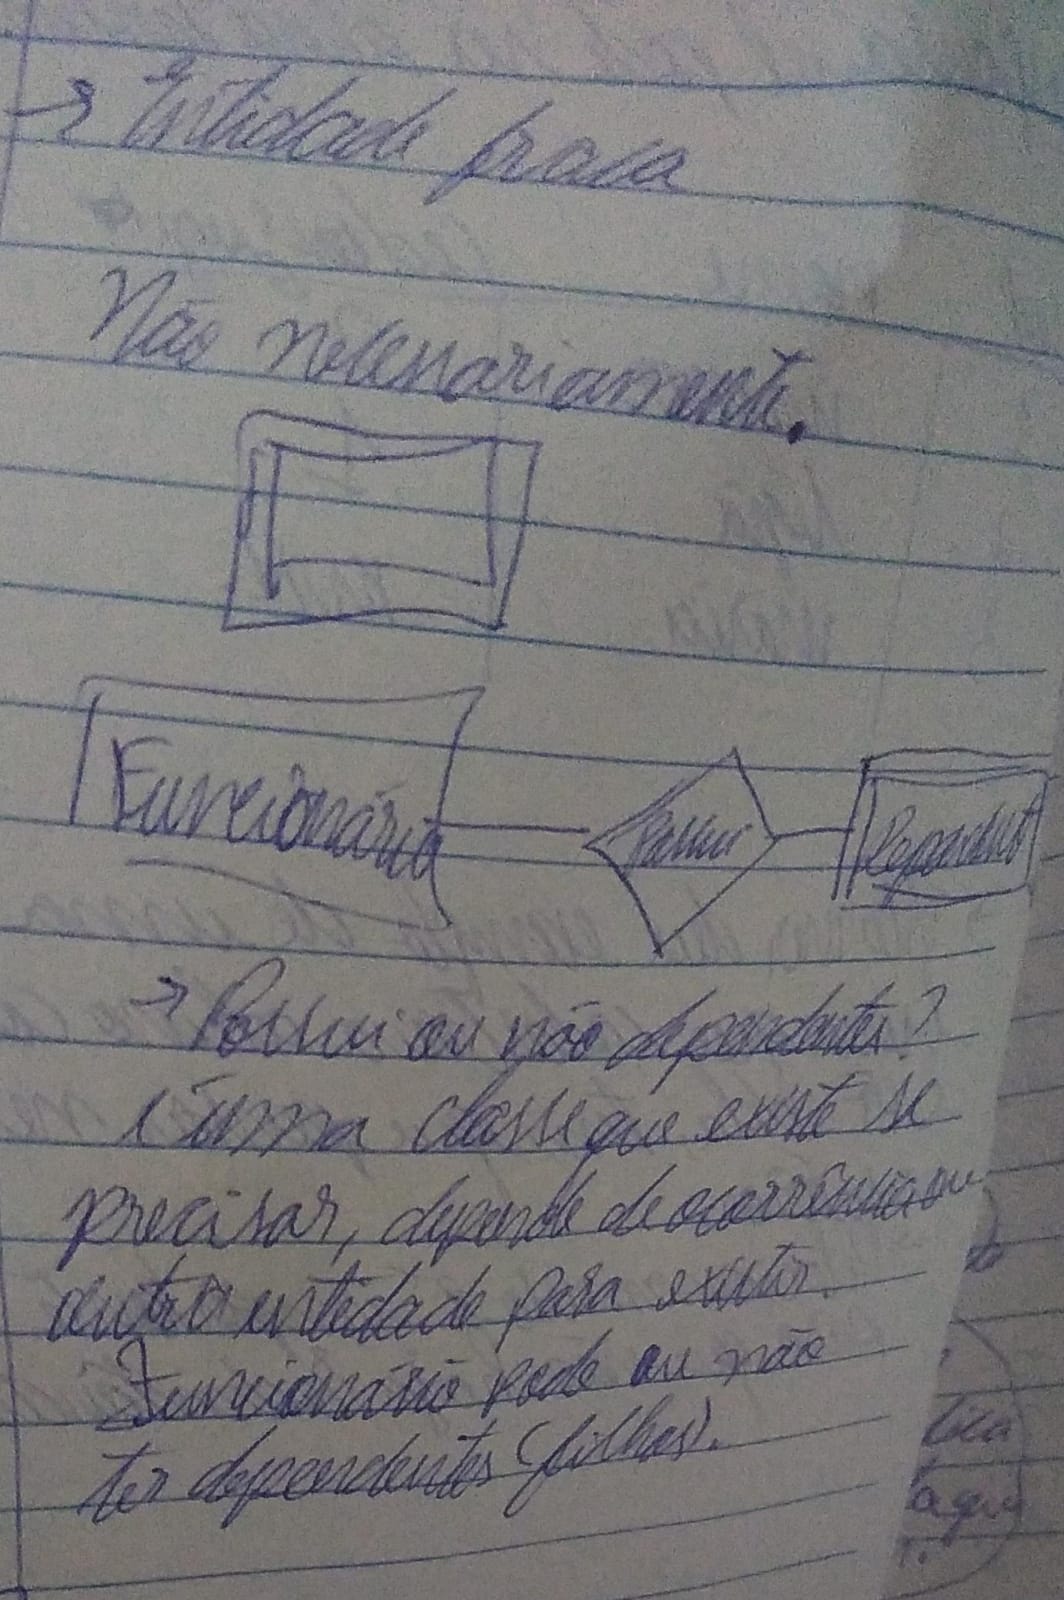 → Entidade fraca
Não necessariamente.
Funcionário
Possui
Dependente
→ Possui ou não dependentes?
É uma classe que existe se
precisar, depende de ocorrência em
outra entidade para existir.
Funcionário pode ou não
ter dependentes (filhos).